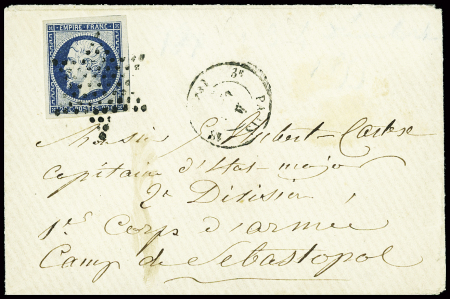 EMPIRE FRANC.
3e
PARIS
3e
Monsieur G. Hubert-Castex
capitaine d'Etat-major
2e Division
1er Corps d'armée
Camp de Sébastopol